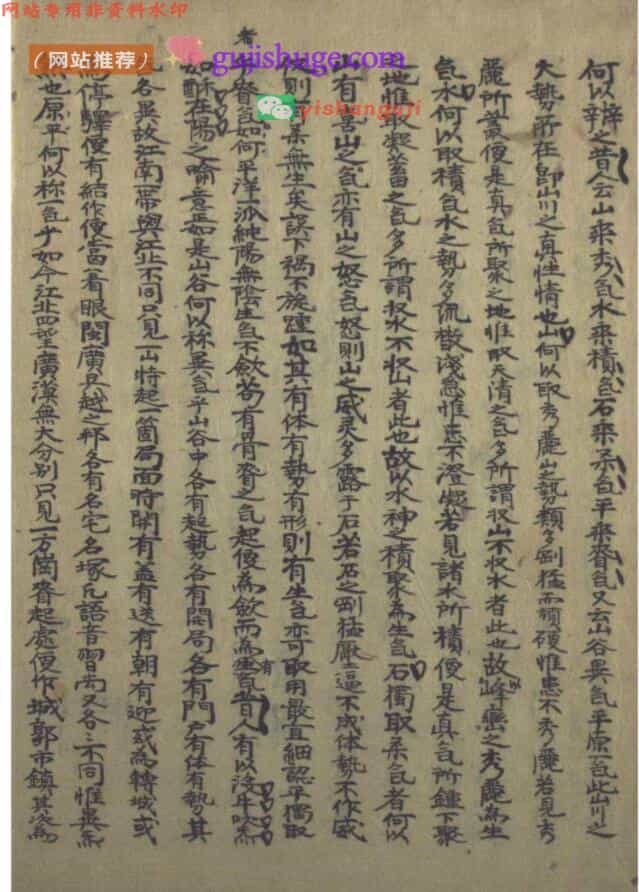 网站专用非资料水印
(网站推荐)
gujishuge.com
yishanguji
何以辨之昔人云山來秀气水來積气石來柔气平來脊气又云山谷異气平原一气此山川之
大勢所在即山川之真性情也山何以取秀麗山勢類多剛猛而頑硬惟患不秀麗若見秀
麗所叢便是真气所聚之地惟取天清之气多所謂収山不収水者此也故以峰巒之秀麗為生
气水何以取積气水之勢多流散淺急惟患不澄凝若見諸水所積便是真气所鍾下聚
之地惟取凝蓄之气多所謂収水不収山者此也故以水神之積聚為生气石獨取柔气者何以
有山之气亦有山之怒气怒則山之威灵多露于石若石之剛猛壓逼不成体勢不作威
則柔無生矣誤下禍不旋踵如其有体有勢有形則有生气亦可取用最宜細認平獨取
脊气者如何平洋一派純陽無陰生气不歛若有骨脊之气起便為歛而為生气昔人有以沒牛吹气
如酥在陽之喻意正如是山谷何以称異气乎山谷中各有起勢各有開局各有門户有体有勢其
各異故江南一帶與江北不同只見一山恃起一箇局面時開有盖有送有朝有迎或為轉城或
為停驛便有結作便當一看眼閩廣吳越之邦各有名宅名塚凡語音習尚又各各不同惟異气
也原平何以称一气乎如今江北四望廣漠無大分別只見一方崗脊起處便作城郭市鎮其次為